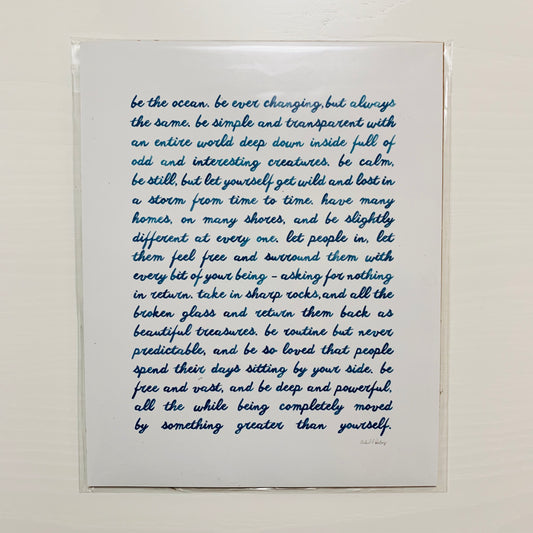 be the ocean. be ever changing, but always
the same. be simple and transparent with
an entire world deep down inside full of
odd and interesting creatures. be calm,
be still, but let yourself get wild and lost in
a storm from time to time. have many
homes, on many shores, and be slightly
different at every one. let people in, let
them feel free and surround them with
every bit of your being - asking for nothing
in return. take in sharp rocks, and all the
broken glass and return them back as
beautiful treasures. be routine but never
predictable, and be so loved that people
spend their days sitting by your side. be
free and vast, and be deep and powerful,
all the while being completely moved
by something greater than yourself.